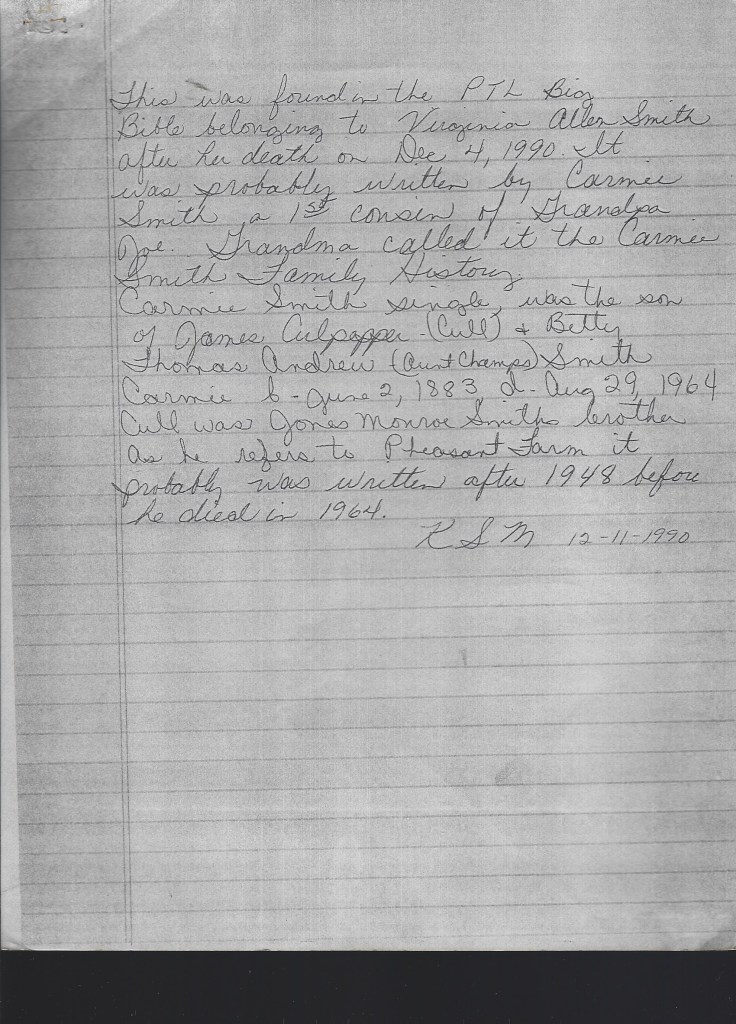 This was found in the PTL Big
Bible belonging to Virginia Allen Smith
after her death on Dec 4, 1990. It
was probably written by Carmie
Smith, a 1st cousin of Grandpa
Joe. Grandma called it the Carmie
Smith Family History.
Carmie Smith single, was the son
of James Culpapper (Cull) & Betty
Thomas Andrew (Aunt Champs) Smith
Carmie b - June 2, 1883 d - Aug 29, 1964
Cull was Jones Monroe Smiths brother
as he refers to Pheasant Farm it
probably was written after 1948 before
he died in 1964.
K S M 12-11-1990